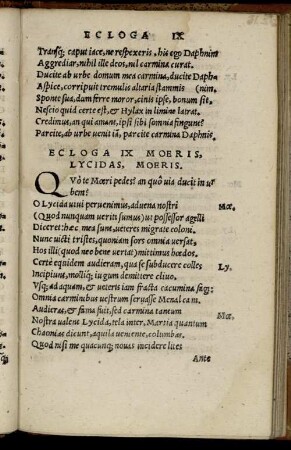 ECLOGA IX
Transq; caput iace, ne respexeris. his ego Daphnim
Aggrediar, nihil ille deos, nil carmina curat.
Ducite ab urbe domum mea carmina, ducite Daph⸗
Aspice, corripuit tremulis altaria flammis (nim.
Sponte sua, dum ferre moror, cinis ipse, bonum sit.
Nescio quid certe est, & Hylax in limine latrat.
Credimus, an qui amant, ipsi sibi somnia fingunt?
Parcite, ab urbe uenit iã, parcite carmina Daphnis.
ECLOGA IX MOERIS.
LYCIDAS, MOERIS.
QVò te Mœri pedes? an quò uia ducit in ur
bem?
O Lycida uiui peruenimus, aduena nostri Mœ.
(Quod nunquam ueriti sumus) ut possessor agelli
Diceret: hæc mea sunt, ueteres migrate coloni.
Nunc uicti tristes, quoniam sors omnia uersat,
Hos illi (quod nec bene uertat) mittimus hœdos.
Certè equidem audieram, qua se subducere colles Ly.
Incipiunt, molliq; iugum demittere cliuo.
Vsq; ad aquam, & ueteris iam fracta cacumina fagi:
Omnia carminibus uestrum seruasse Menalcam.
Audieras, & fama fuit, sed carmina tantum Mœ.
Nostra ualent Lycida, tela inter, Martia quantum
Chaonias dicunt, aquila ueniente, columbas.
Quod nisi me quacunq; nouas incidere lites
Ante